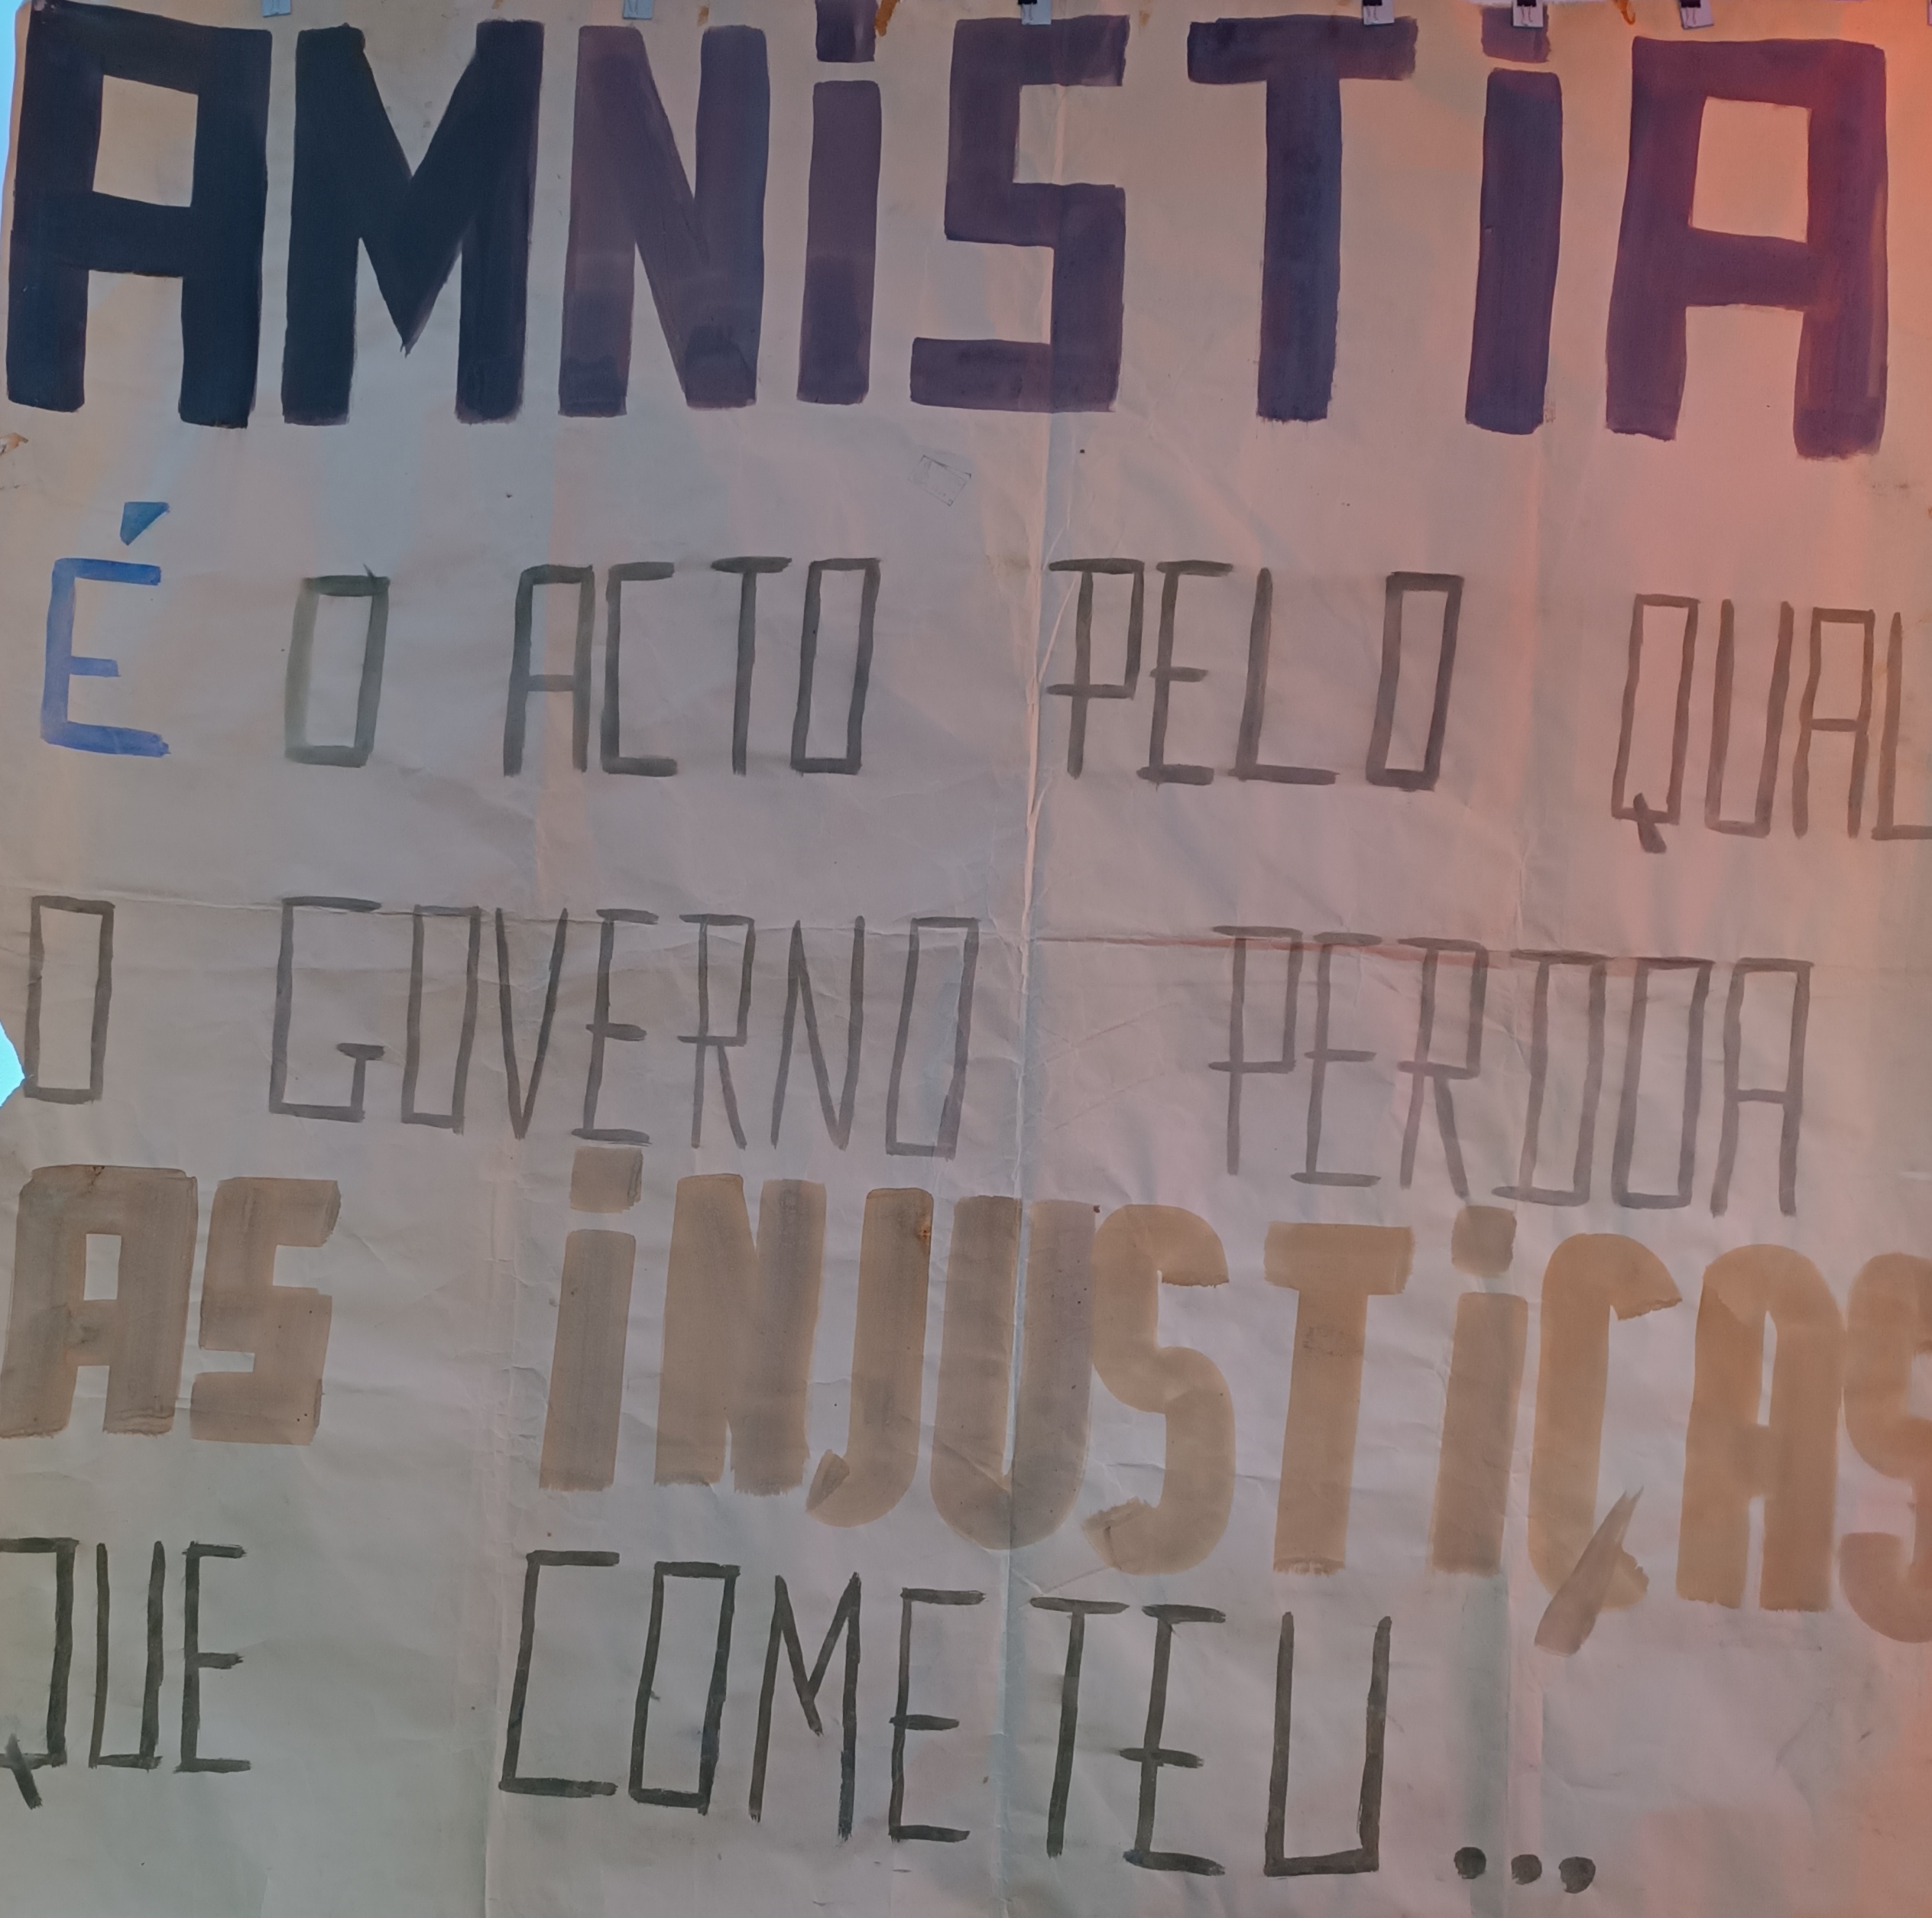 AMNiSTiA
É O ACTO PELO QUAL
O GOVERNO PERDOA
AS iNJUSTiÇAS
QUE COMETEU...